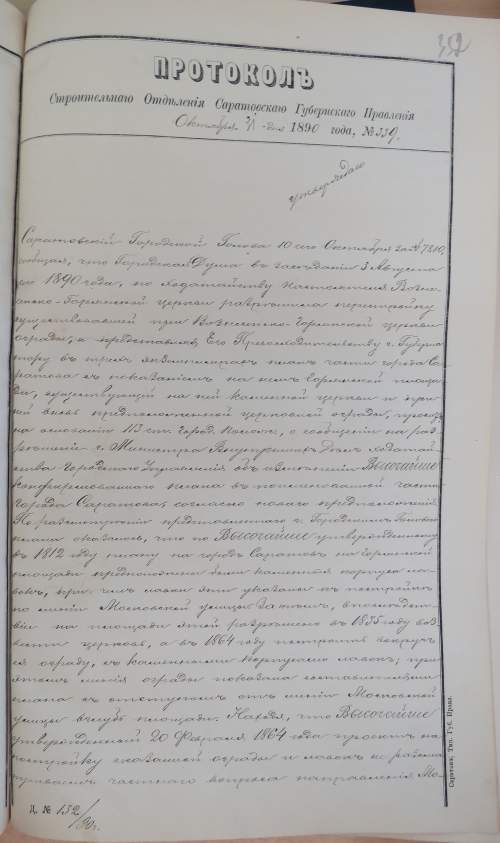 352
ПРОТОКОЛЪ
Строительнаго Отдѣленія Саратовскаго Губернскаго Правленія
Октября 31 дня 1890 года, № 339.
утверждаю
Саратовскій Городской Голова 10 сего Октября за № 7810,
сообщая, что Городская Дума въ засѣданіи 3 Августа
1890 года, по ходатайству настоятеля Возне-
сенско-Горянской церкви разрѣшила перестройку
существовавшей при Вознесенско-Горянской церкви
ограды, и представивъ Его Превосходительству г. Губерна-
тору въ трехъ экземплярахъ планъ части города Са-
ратова съ показаніемъ на немъ Горянской площа-
ди, существующей на ней каменной церкви и
вновь предположенной церковной ограды, проситъ
на основаніи 113 ст. Город. Полож., о сообщеніи на раз-
рѣшеніе г. Министра Внутреннихъ Дѣлъ ходатай-
ства Городского Управленія объ измѣненіи Высочайше
конфирмованнаго плана въ поименованной части
города Саратова, согласно новаго предположенія
По разсмотрѣніи представленнаго г. Городскимъ Головою
плана оказалось, что по Высочайше утвержденному
въ 1812 году плану на городъ Саратовъ на Горянской
площади предположены были каменные корпуса ла-
вокъ, при чемъ лавки эти указаны къ постройкѣ
по линіи Московской улицы; затѣмъ, впослѣдст-
віе на площади этой разрѣшено въ 1855 году воз-
вести церковь, а въ 1864 году построить вокругъ
ея ограду, съ каменными корпусами лавокъ; при
этомъ линія ограды показана
плана съ отступомъ отъ линіи Московской
улицы вглубь площади. Находя, что Высочайше
утвержденный 20 Февраля 1864 года проектъ на
постройку сказанной ограды и лавокъ не
частнаго вопроса направленія Мо-
Д. № 132/90г.
Саратовъ, Тип. Губ. Правл.